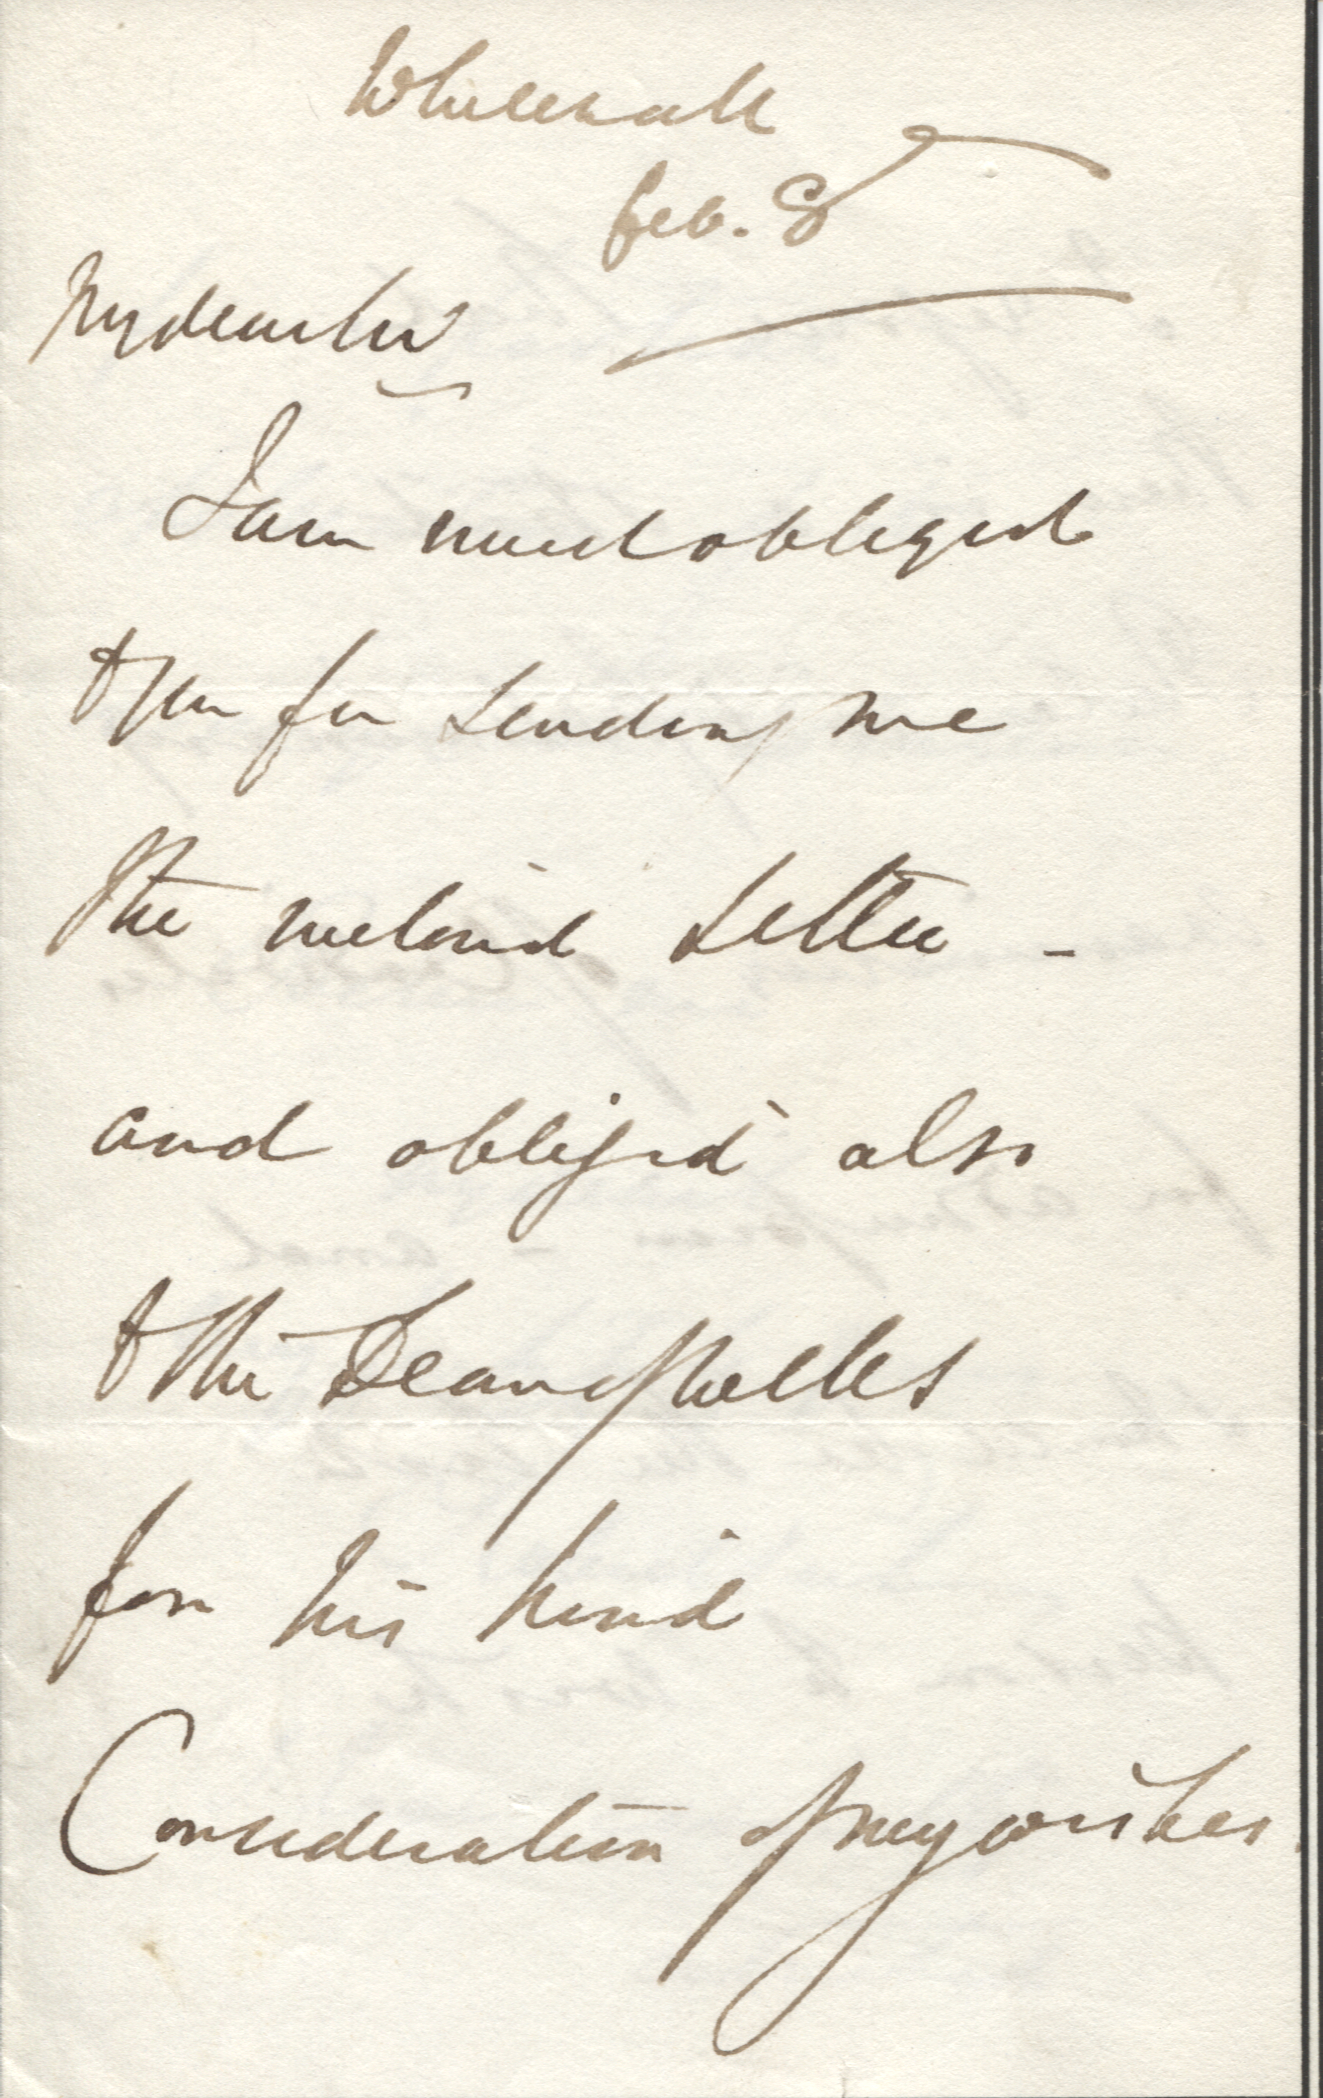 Whitehall
Feb. 8
My dear Sir
I am much obliged
to you for sending me
the inclosed Letter -
and obliged also
to the Dean of Wells
for his kind
Consideration of my wishes.